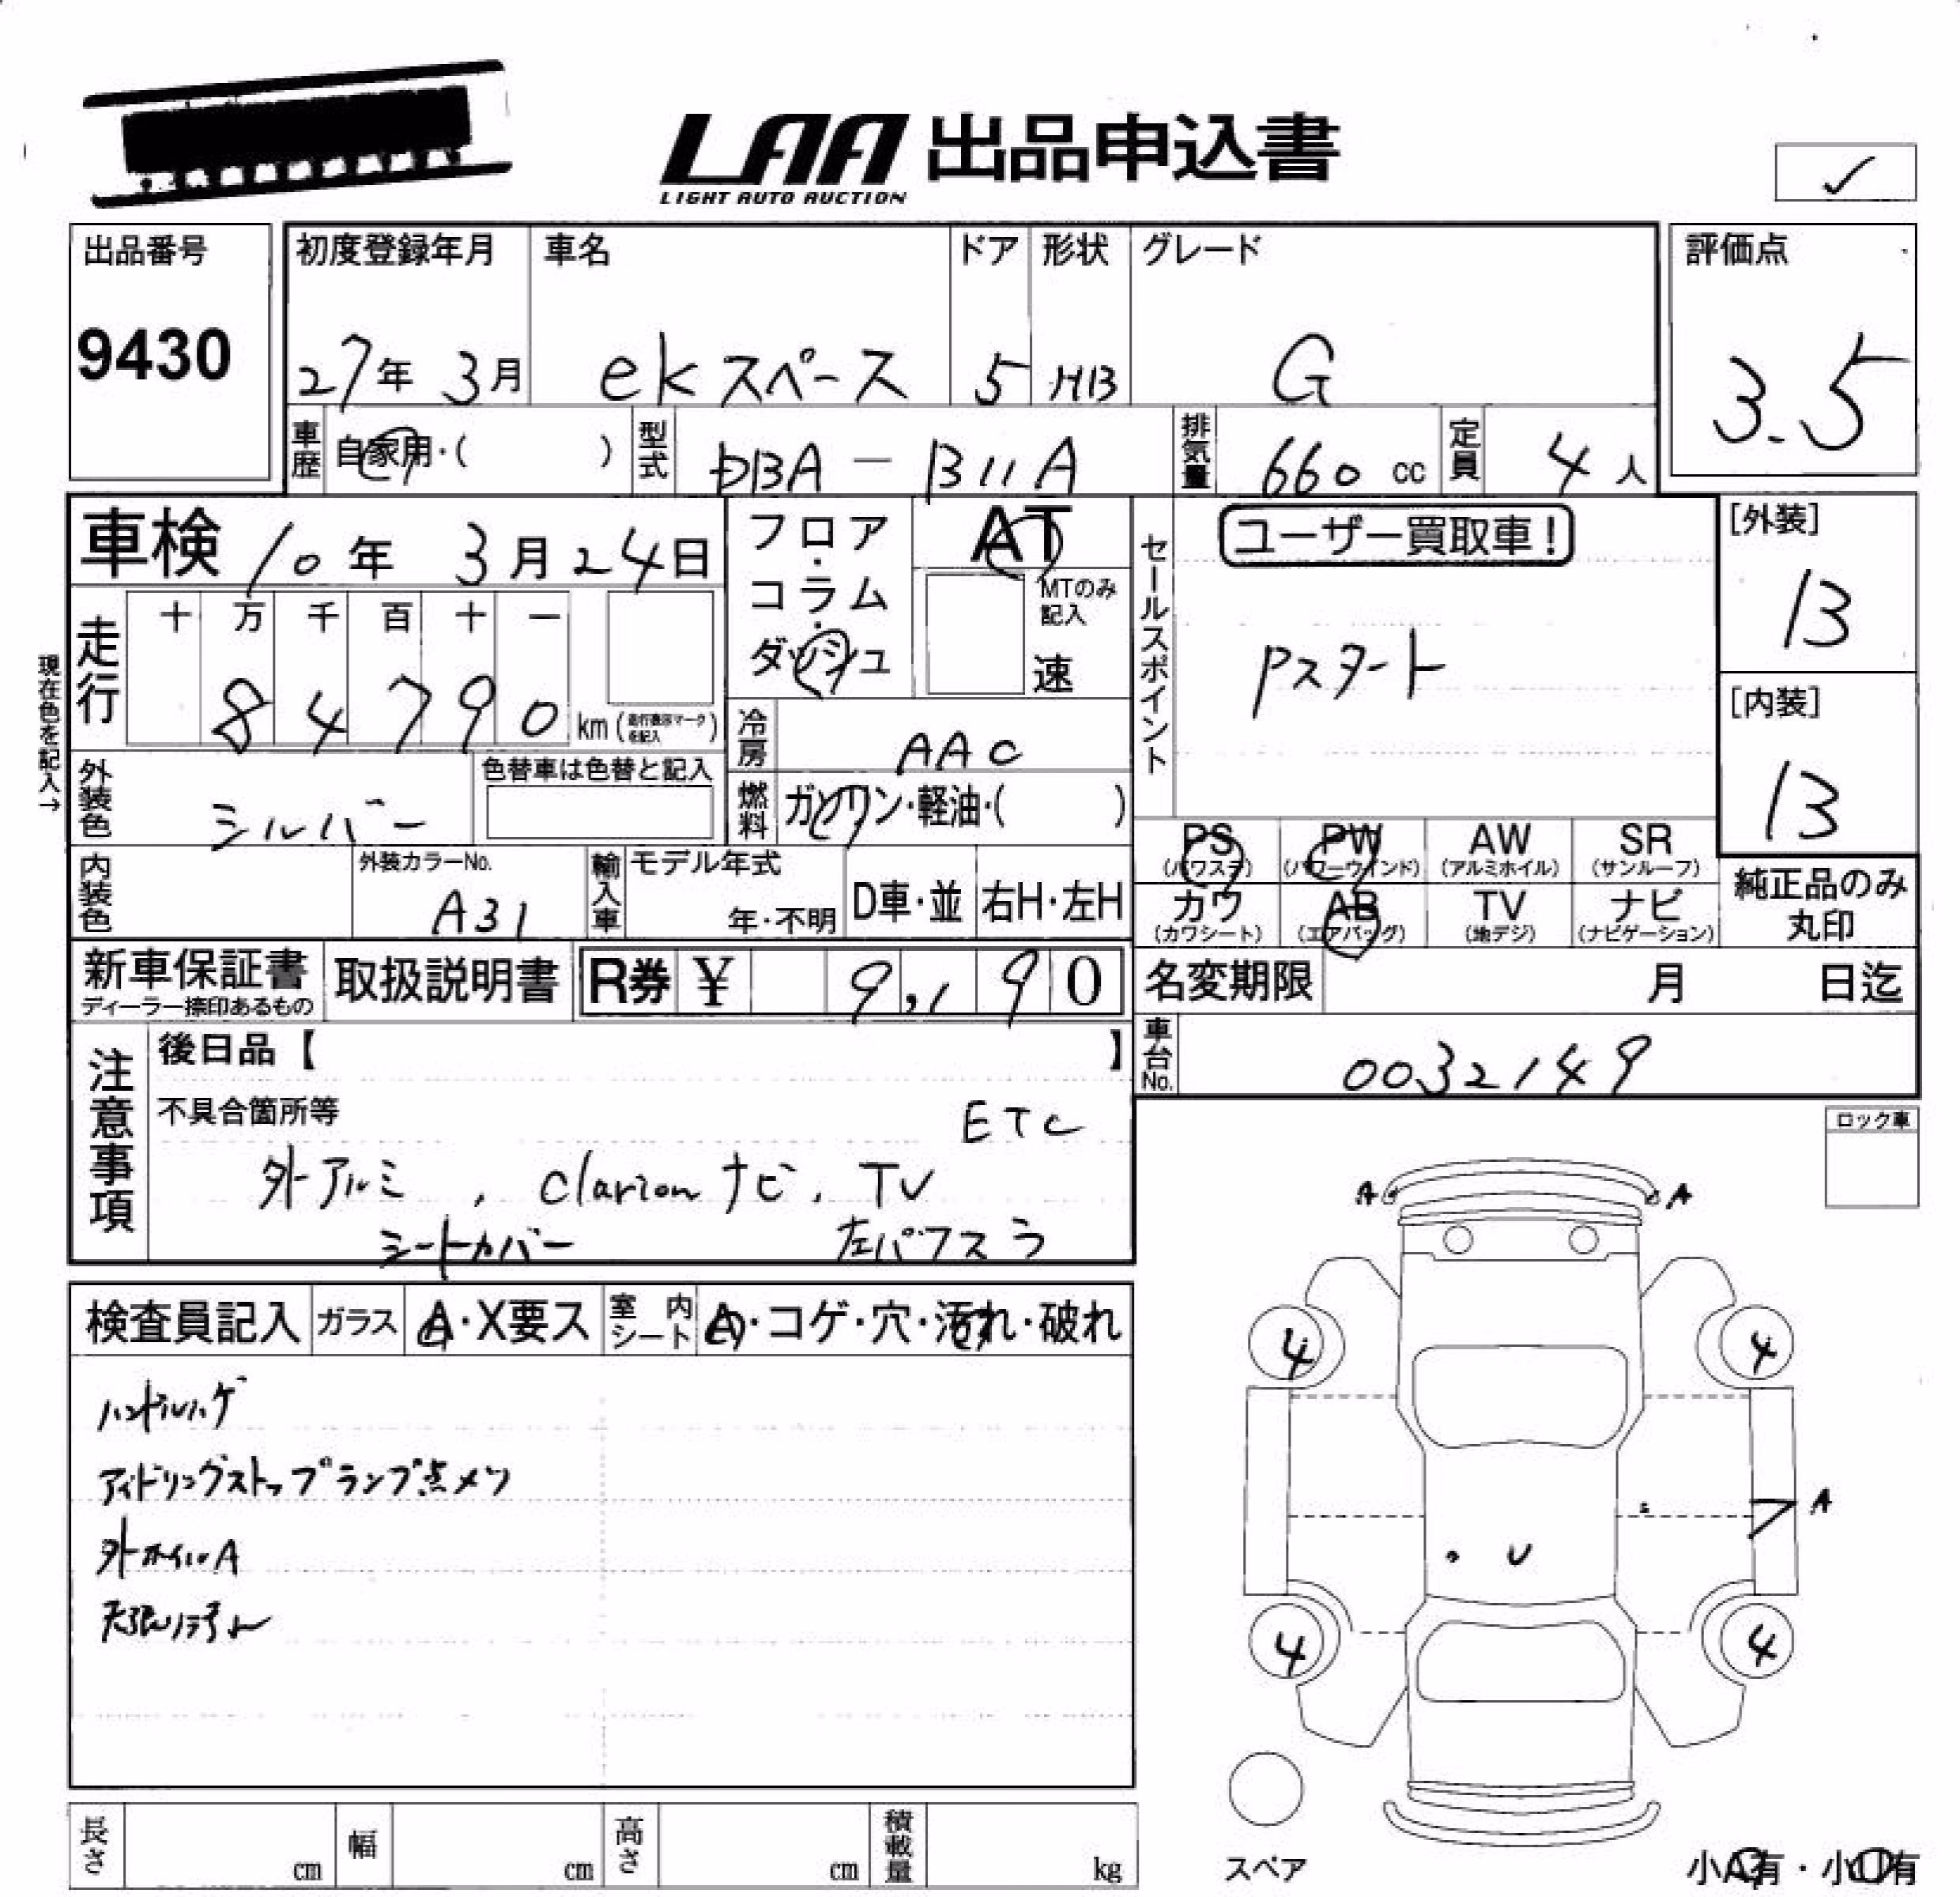 LAA 出品申込書
LIGHT AUTO AUCTION
✓
出品番号
9430
初度登録年月
27年 3月
車名
ekスペース
ドア
5
形状
HB
グレード
G
評価点
3.5
車歴 自家用・( )
型式 DBA-B11A
排気量 660 cc
定員 4 人
車検 10年 3月24日
走行 十 万 千 百 十 一
84790 km (走行表示マークを記入)
現在色を記入→
外装色 シルバー
色替車は色替と記入
内装色
外装カラーNo.
A31
輸入車 モデル年式
年・不明
D車・並
右H・左H
フロア・コラム・ダッシュ
AT
MTのみ記入
速
冷房 AAC
燃料 ガソリン・軽油・( )
セールスポイント
ユーザー買取車!
Pスタート
[外装]
13
[内装]
13
PS (パワステ)
PW (パワーウインド)
AW (アルミホイル)
SR (サンルーフ)
カワ (カワシート)
AB (エアバッグ)
TV (地デジ)
ナビ (ナビゲーション)
純正品のみ丸印
新車保証書
ディーラー捺印あるもの
取扱説明書
R券 ¥ 9,190
名変期限 月 日迄
車台No. 0032149
注意事項
後日品【 】
不具合箇所等
ETC
外アルミ , Clarionナビ, TV
シートカバー
ロック車
検査員記入
ガラス A・X要ス
室内シート A・コゲ・穴・汚れ・破れ
ハンドルハゲ
アイドリングストップランプ点メツ
外ホイルA
A A
4 4
A
U
4 4
スペア
長さ cm
幅 cm
高さ cm
積載量 kg
小A有・小U有